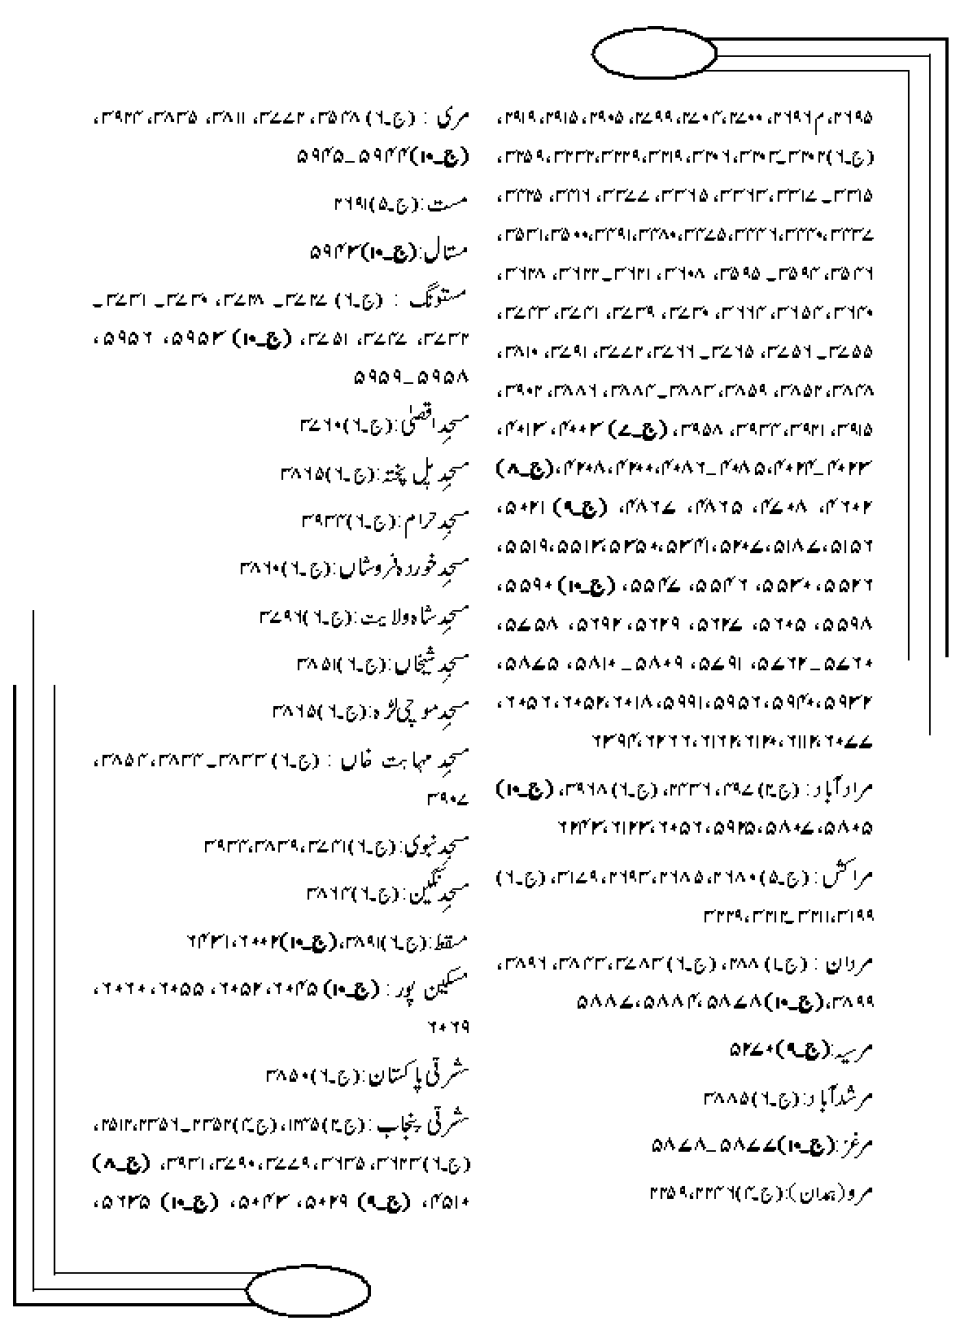 ۲۶۹۵، م۲۶۹۶، ۲۷۰۰، ۲۷۰۴، ۲۷۹۹، ۲۹۰۵، ۲۹۱۵، ۲۹۱۹،
(ج۔۶)۳۲۰۲_۳۲۰۳، ۳۲۰۶، ۳۲۱۹، ۳۲۲۹، ۳۲۳۲، ۳۲۵۹،
۳۳۱۵_ ۳۳۱۷، ۳۳۶۳، ۳۳۶۵، ۳۳۷۷، ۳۴۱۶، ۳۴۲۵،
۳۴۳۷، ۳۴۴۰، ۳۴۴۶، ۳۴۷۵، ۳۴۸۰، ۳۴۹۱، ۳۵۰۰، ۳۵۳۱،
۳۵۴۶، ۳۵۹۴_ ۳۵۹۵، ۳۶۰۸، ۳۶۲۱_ ۳۶۲۲، ۳۶۲۸،
۳۶۴۰، ۳۶۵۴، ۳۶۶۴، ۳۷۳۰، ۳۷۳۹، ۳۷۴۱، ۳۷۴۳،
۳۷۵۵_ ۳۷۵۶، ۳۷۶۵_ ۳۷۶۶، ۳۷۷۲، ۳۷۹۱، ۳۸۱۰،
۳۸۴۸، ۳۸۵۲، ۳۸۵۹، ۳۸۸۳_۳۸۸۴، ۳۸۸۶، ۳۹۰۲،
۳۹۱۵، ۳۹۲۱، ۳۹۳۴، ۳۹۵۸، (ج۔۷) ۴۰۰۳، ۴۰۱۳،
۴۰۲۳_۴۰۲۴، ۴۰۸۵_۴۰۸۶، ۴۲۰۰، ۴۲۰۸، (ج۔۸)
۴۶۰۲، ۴۷۰۸، ۴۸۶۵، ۴۸۶۷، (ج۔۹) ۵۰۲۱،
۵۱۵۶، ۵۱۸۷، ۵۲۰۷، ۵۳۴۱، ۵۳۵۰، ۵۵۱۳، ۵۵۱۹،
۵۵۲۶، ۵۵۳۰، ۵۵۴۶، ۵۵۴۷، (ج۔۱۰) ۵۵۹۰،
۵۵۹۸، ۵۶۰۵، ۵۶۲۷، ۵۶۲۹، ۵۶۹۲، ۵۷۵۸،
۵۷۶۰_۵۷۶۲، ۵۷۹۱، ۵۸۰۹_ ۵۸۱۰، ۵۸۷۵،
۵۹۳۲، ۵۹۴۰، ۵۹۵۶، ۵۹۹۱، ۶۰۱۸، ۶۰۵۲، ۶۰۵۶،
۶۰۷۷، ۶۱۱۲، ۶۱۲۰، ۶۱۲۲، ۶۲۲۶، ۶۳۹۴
مراد آباد: (ج۔۲) ۳۹۷، ۲۴۳۶، (ج۔۶) ۳۹۶۸، (ج۔۱۰)
۵۸۰۵، ۵۸۰۷، ۵۹۲۵، ۶۰۵۶، ۶۱۲۳، ۶۲۴۳
مراکش: (ج۔۵) ۲۶۸۰، ۲۶۸۵، ۲۶۹۳، ۳۱۷۹، (ج۔۶)
۳۱۹۹، ۳۲۱۱_۳۲۱۲، ۳۲۲۹
مردان: (ج۔۱) ۲۸۸، (ج۔۶) ۳۷۸۳، ۳۸۴۳، ۳۸۹۶،
۳۸۹۹، (ج۔۱۰) ۵۸۷۸، ۵۸۸۴، ۵۸۸۷
مرسیہ: (ج۔۹) ۵۲۷۰
مرشد آباد: (ج۔۶) ۳۸۸۵
مرغز: (ج۔۱۰) ۵۸۷۷_۵۸۷۸
مرو (ہمدان): (ج۔۴) ۲۲۴۶، ۲۲۵۹
مری: (ج۔۶) ۳۵۴۸، ۳۷۷۲، ۳۸۱۱، ۳۸۳۵، ۳۹۲۴،
(ج۔۱۰) ۵۹۴۴_۵۹۴۵
مست: (ج۔۵) ۲۶۹۱
مستال: (ج۔۱۰) ۵۹۴۳
مستونگ: (ج۔۶) ۳۷۲۷_ ۳۷۲۸، ۳۷۳۰_ ۳۷۳۱_
۳۷۳۲، ۳۷۴۷، ۳۷۵۱، (ج۔۱۰) ۵۹۵۳، ۵۹۵۶،
۵۹۵۸_۵۹۵۹
مسجد اقصیٰ: (ج۔۶) ۳۷۶۰
مسجد پل پختہ: (ج۔۶) ۳۸۶۵
مسجد حرام: (ج۔۶) ۳۹۳۳
مسجد خوردہ فروشاں: (ج۔۶) ۳۸۶۰
مسجد شاہ ولایت: (ج۔۶) ۳۷۹۶
مسجد شیخاں: (ج۔۶) ۳۸۵۱
مسجد موچی لڑہ: (ج۔۶) ۳۸۶۵
مسجد مہابت خاں: (ج۔۶) ۳۸۳۳_۳۸۳۴، ۳۸۵۴،
۳۹۰۷
مسجد نبوی: (ج۔۶) ۳۷۴۱، ۳۸۳۹، ۳۹۳۳
مسجد نگین: (ج۔۶) ۳۸۶۴
مسقط: (ج۔۶) ۳۸۹۱، (ج۔۱۰) ۶۰۰۲، ۶۴۳۱
مسکین پور: (ج۔۱۰) ۶۰۴۵، ۶۰۵۲، ۶۰۵۵، ۶۰۶۰،
۶۰۶۹
مشرقی پاکستان: (ج۔۶) ۳۸۵۰
مشرقی پنجاب: (ج۔۲) ۱۲۳۵، (ج۔۴) ۲۳۵۲_۲۳۵۶، ۲۵۱۲،
(ج۔۶) ۳۶۲۳، ۳۶۳۵، ۳۷۷۹، ۳۷۹۰، ۳۹۳۱، (ج۔۸)
۴۵۱۰، (ج۔۹) ۵۰۲۹، ۵۰۴۳، (ج۔۱۰) ۵۶۳۵،